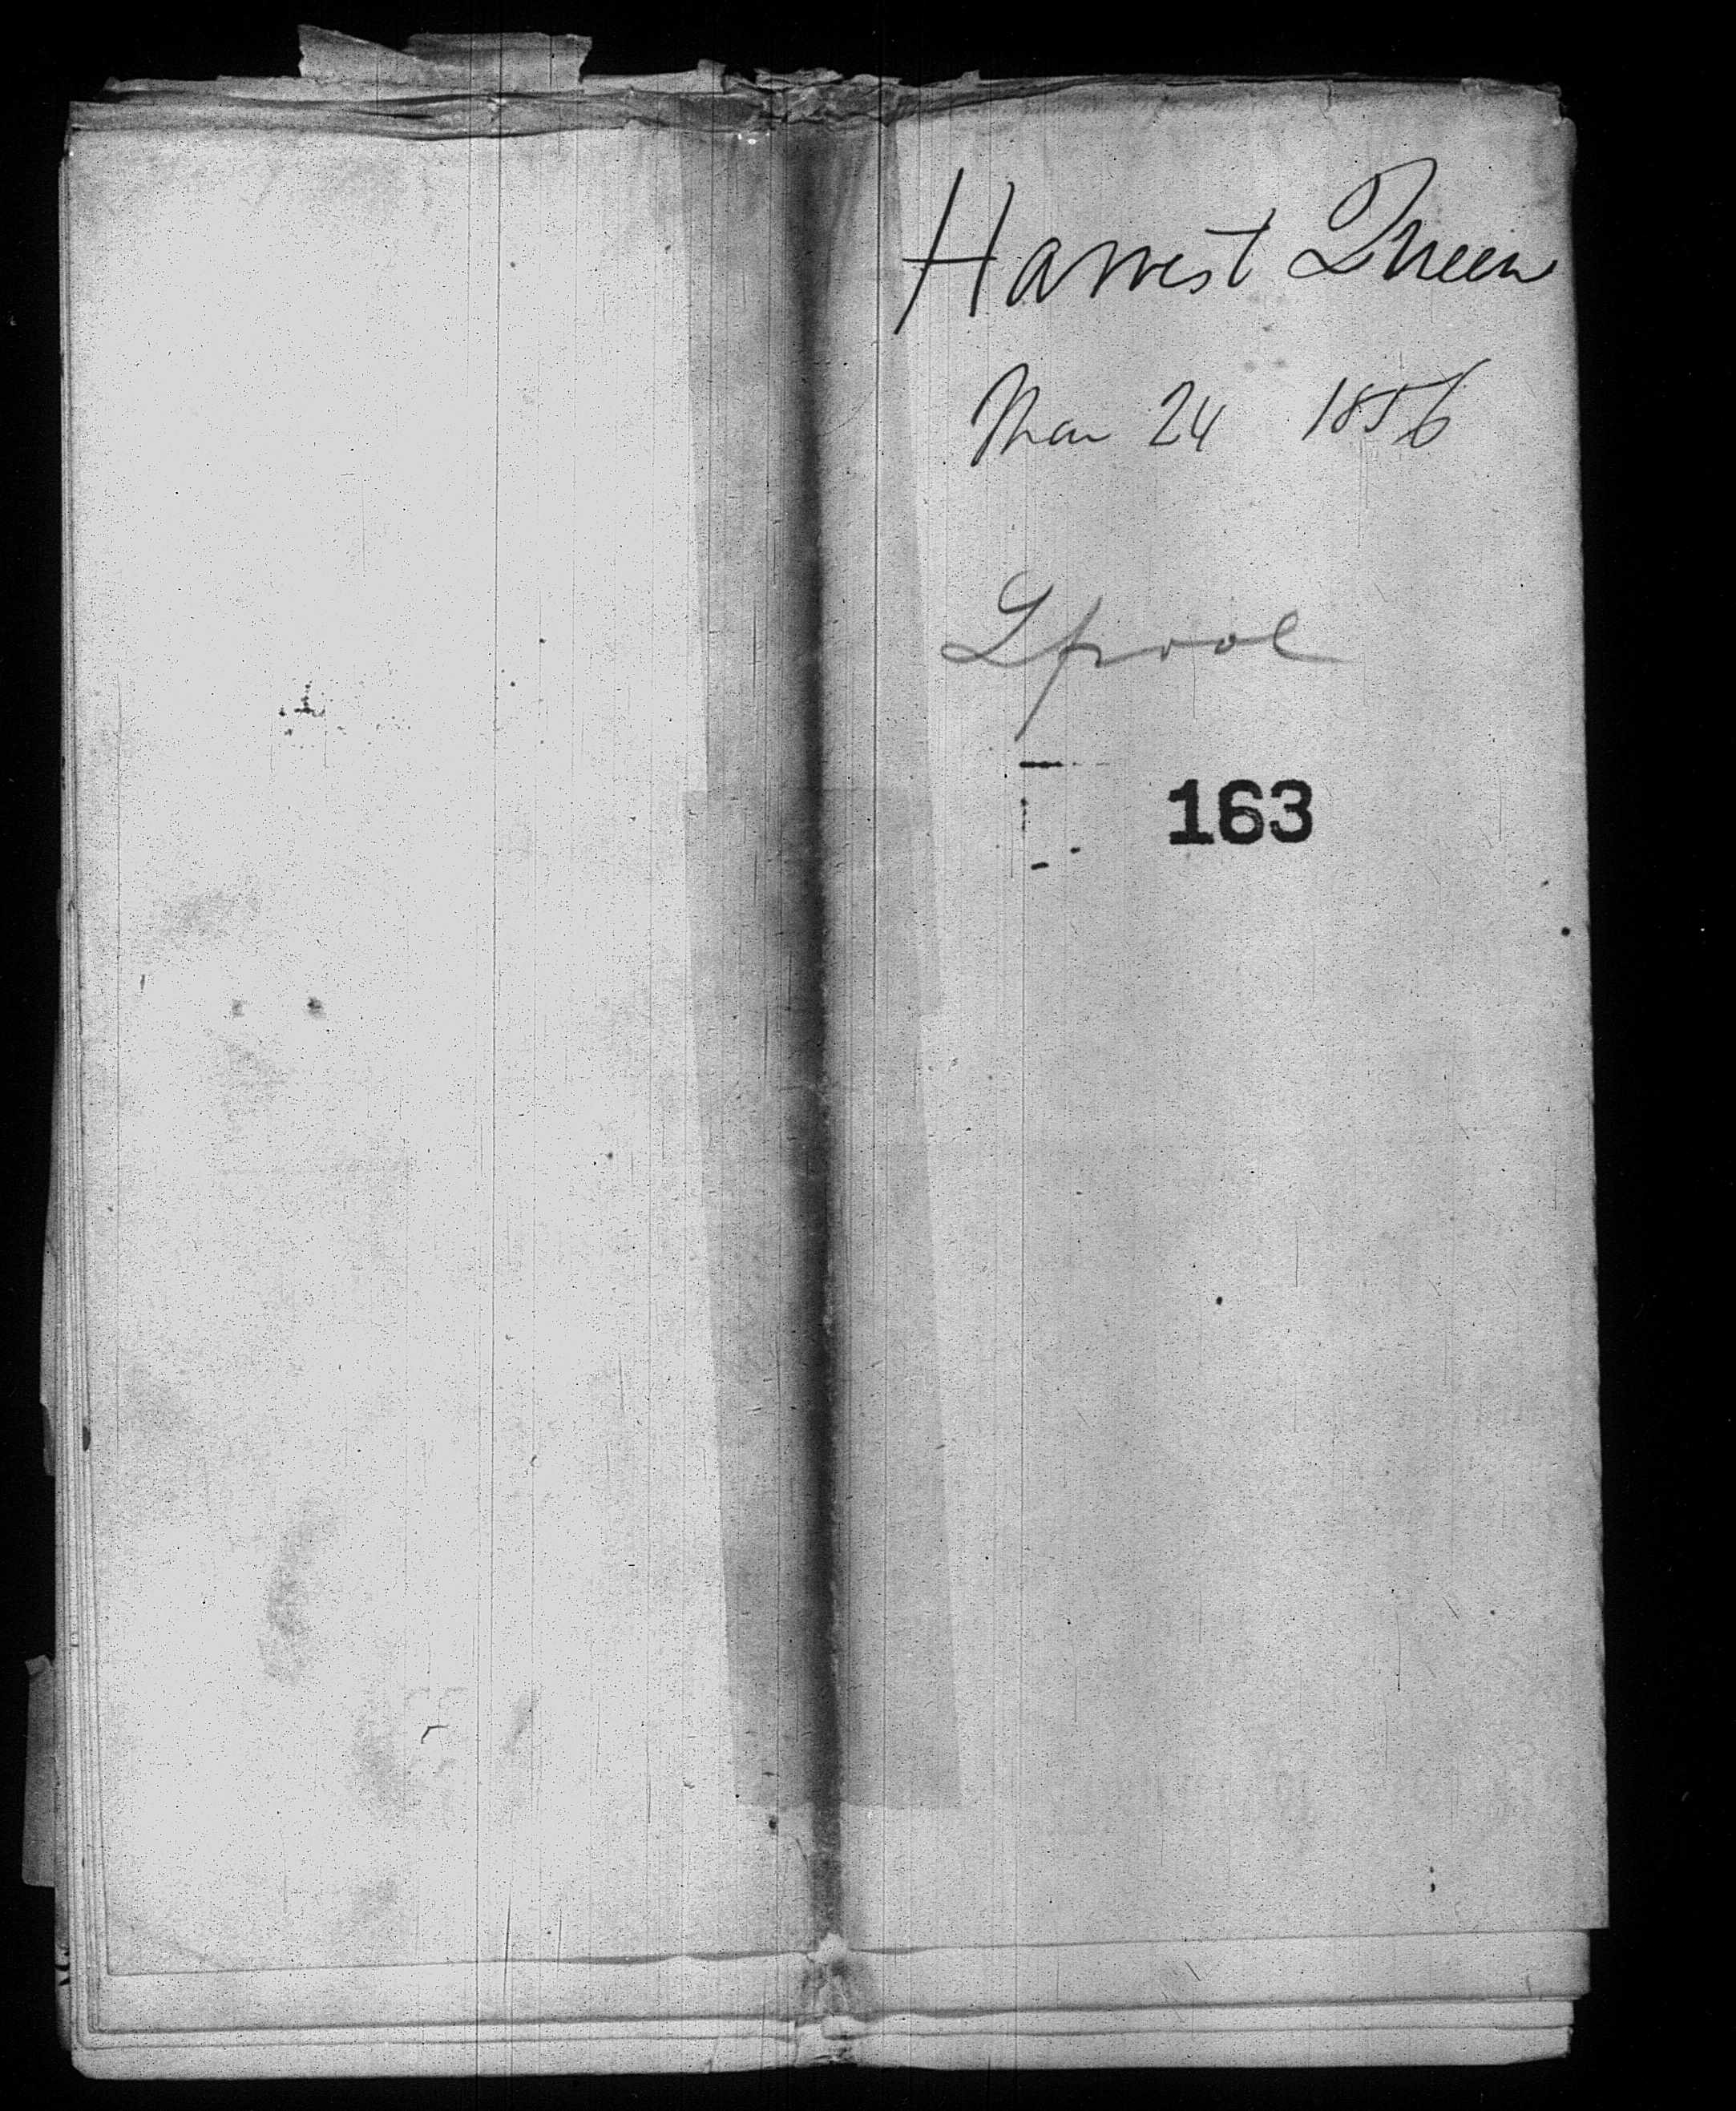 Harvest Queen
Mar 24 1856
Lpool
163